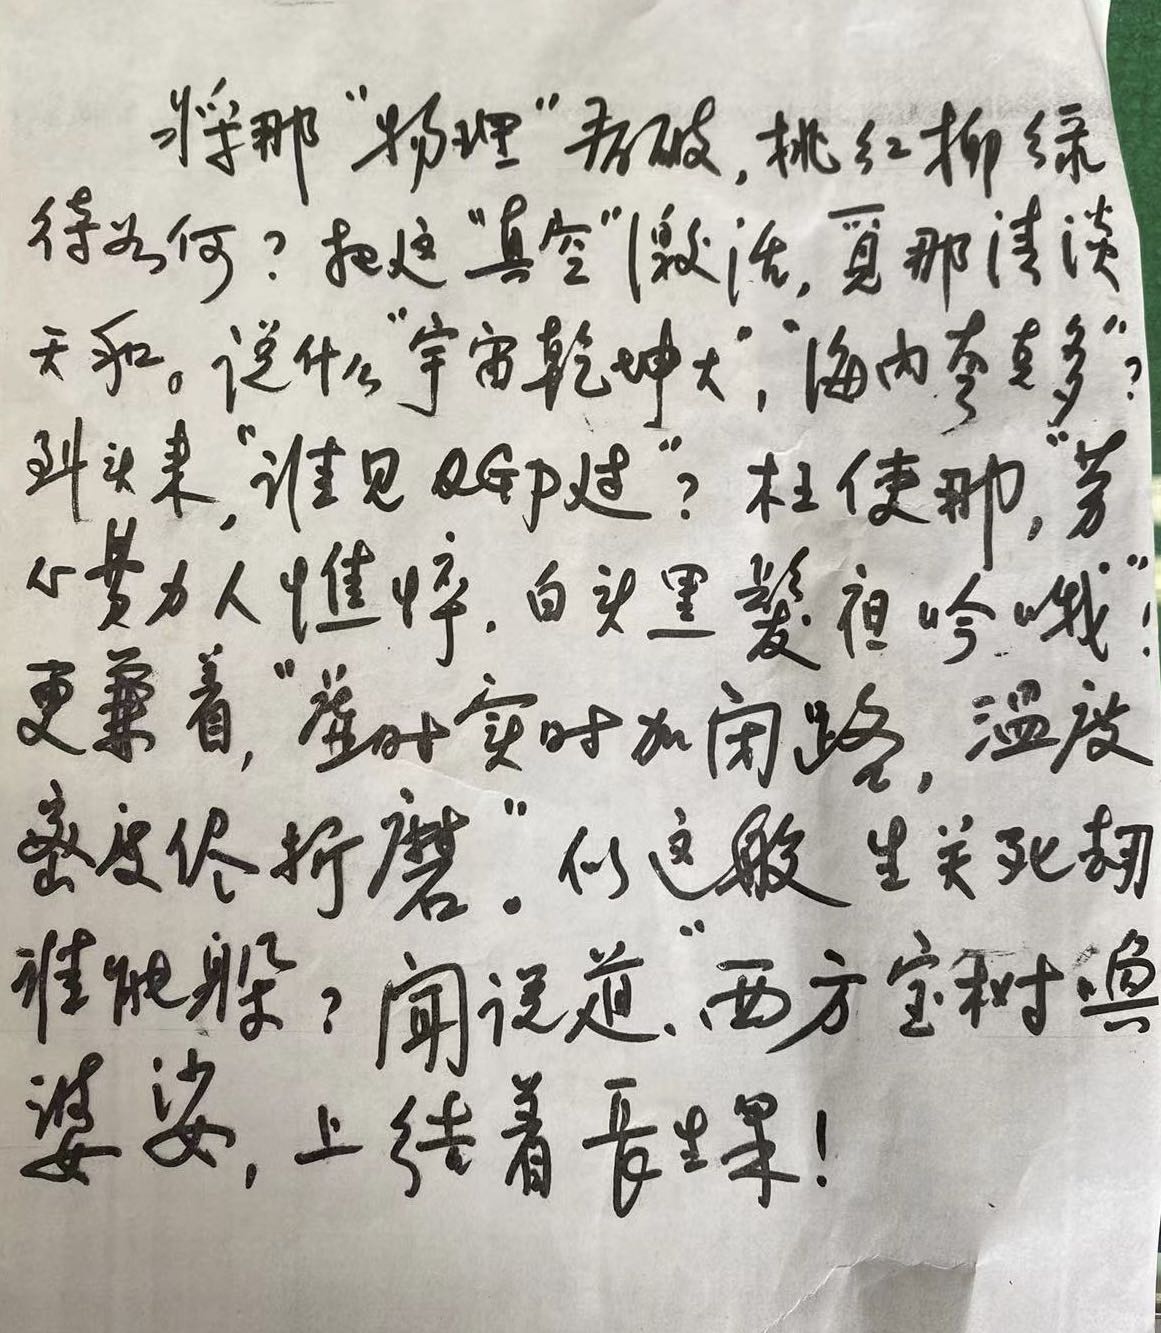 将那“物理”看破，桃红柳绿
待如何？把这“真空”激活，覓那清淡
天和。说什么“宇宙乾坤大”，“海内夸克多”？
到头来，“谁见QGP过”？枉使那，“劳
心费力人憔悴，白头黑髪祖吟哦”！
更兼着，“虚时实时加闭路，温度
密度尽折磨”。似这般生关死劫
谁能躲？闻说道，“西方宝树唤
婆娑，上结着長生果！